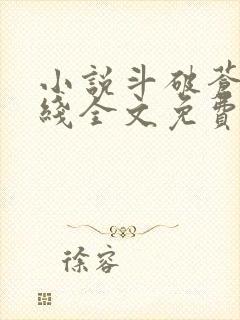 小說斗破蒼
綫全文免費
徐容